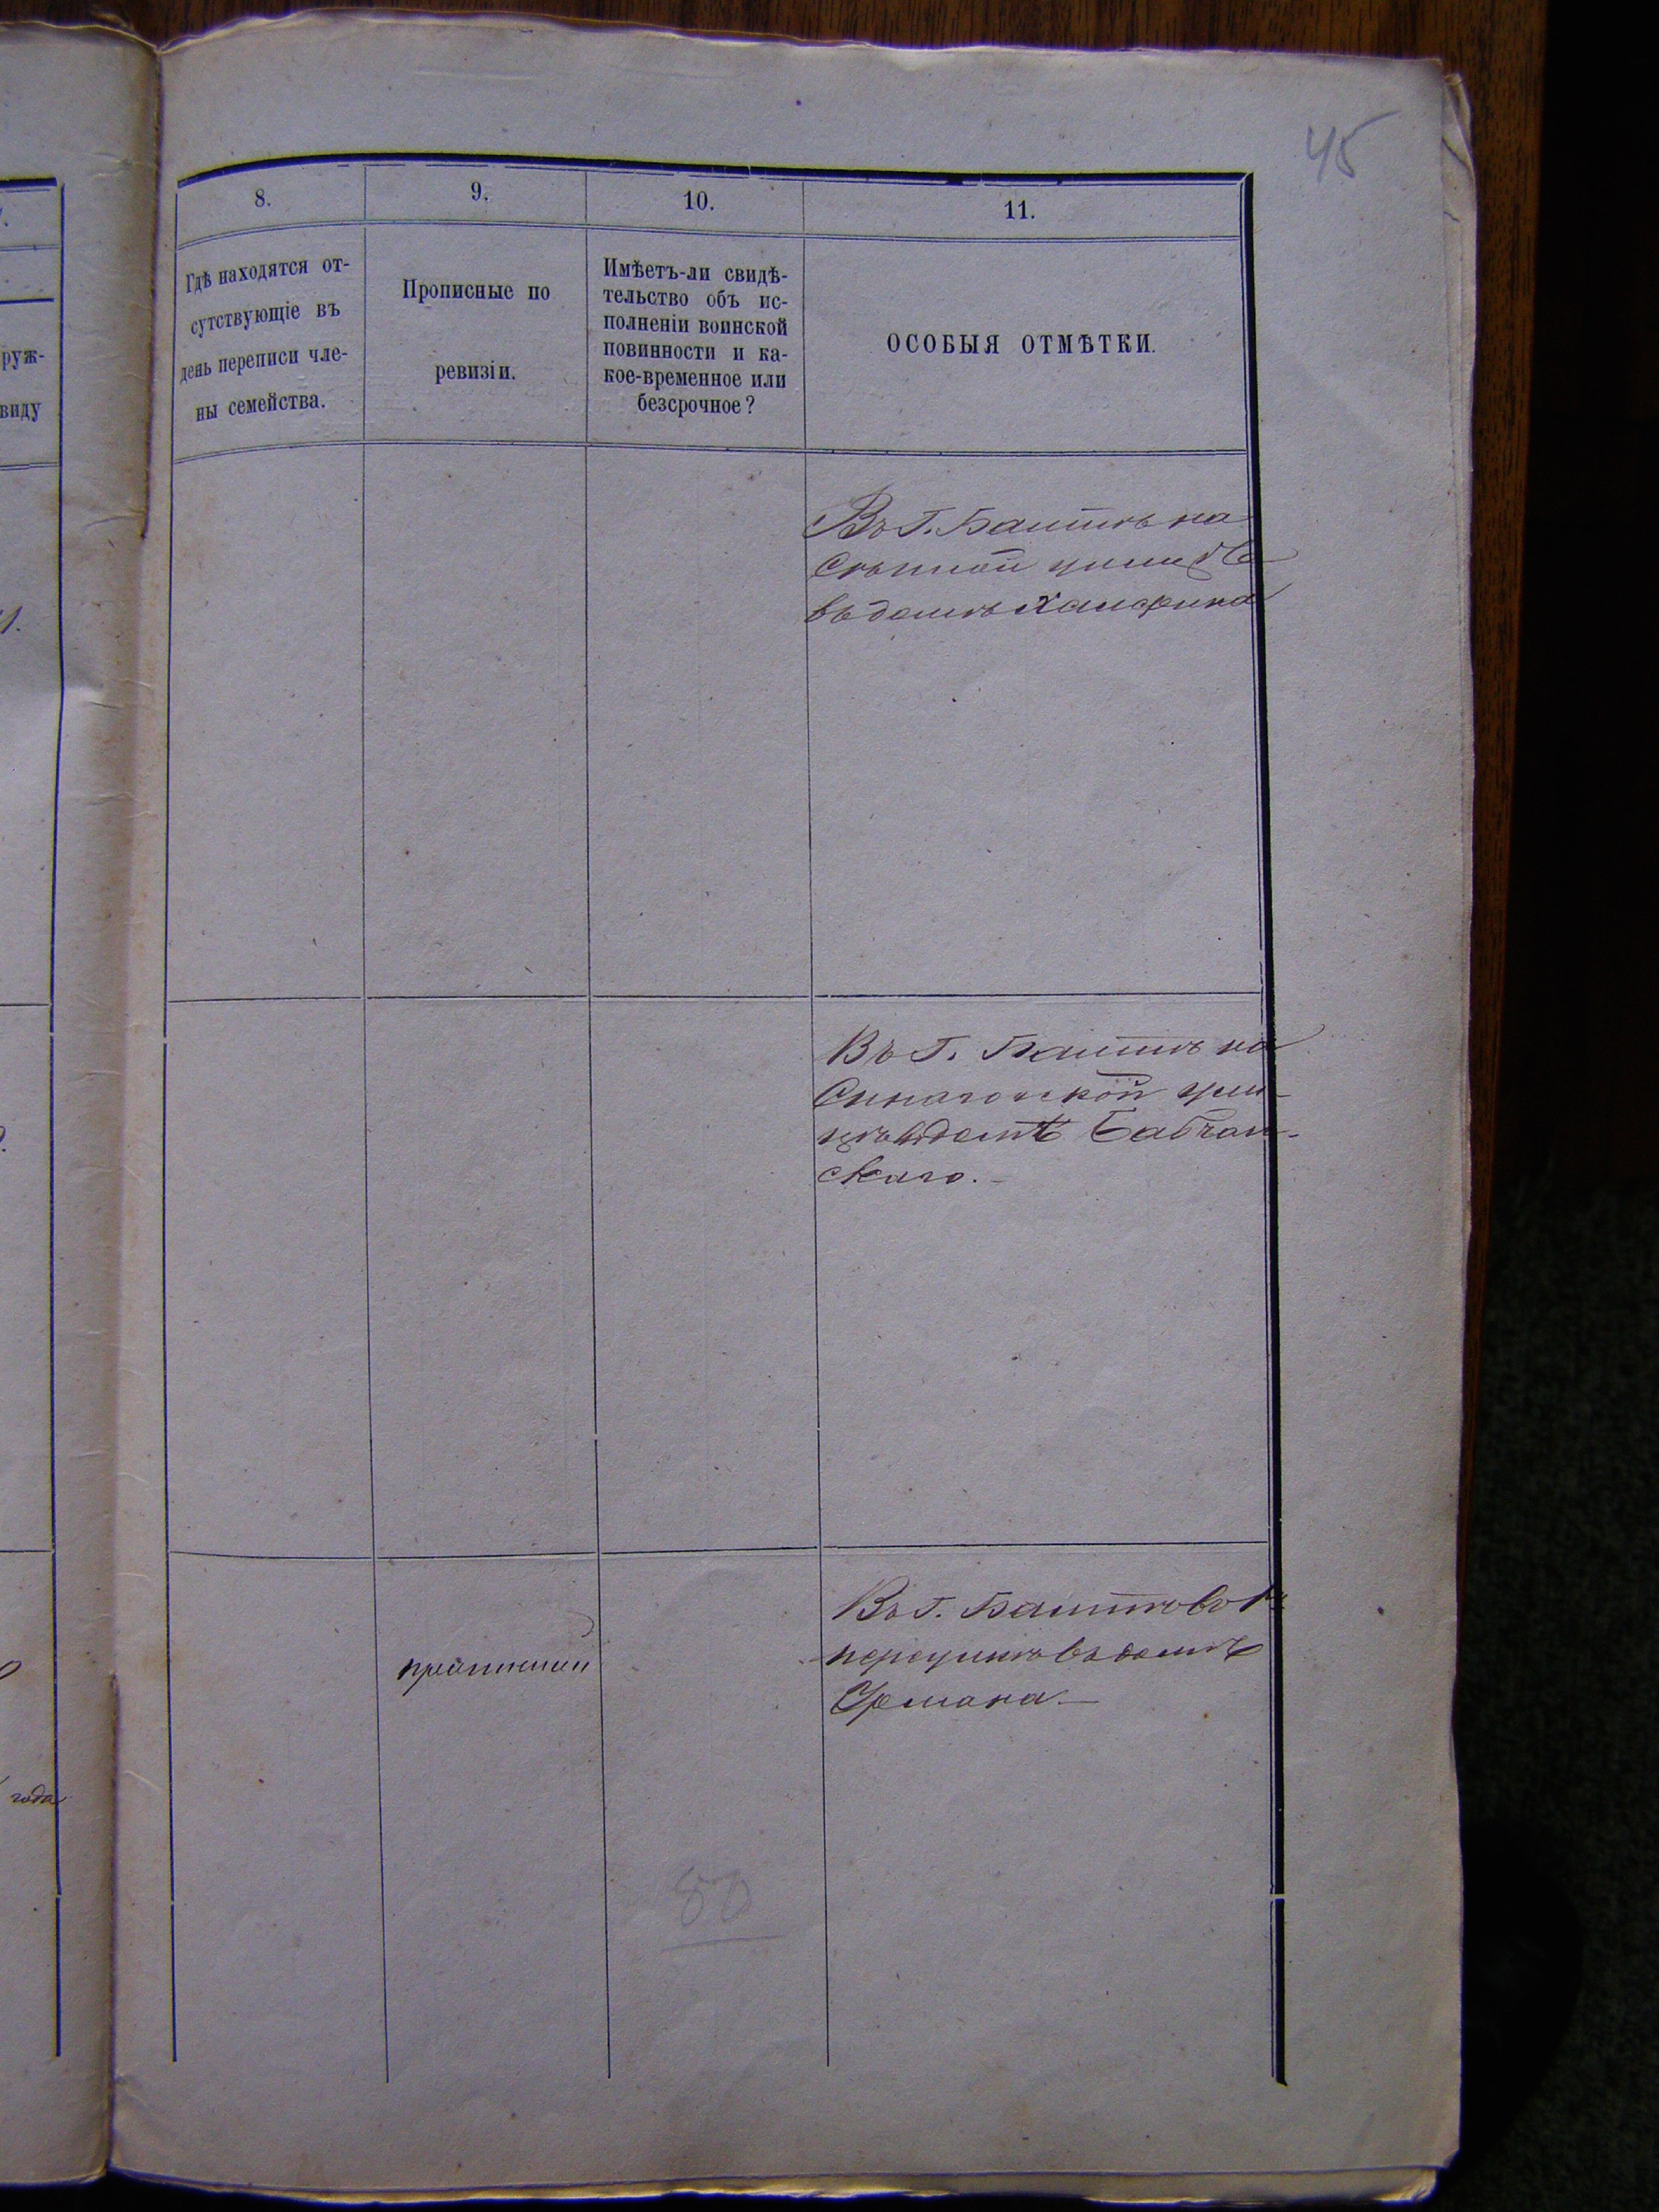 45
8.
9.
10.
11.
Гдѣ находятся от-
сутствующіе въ
день переписи чле-
ны семейства.
Прописные по
ревизіи.
Имѣетъ-ли свидѣ-
тельство объ ис-
полненіи воинской
повинности и ка-
кое-временное или
безсрочное?
ОСОБЫЯ ОТМѢТКИ.
руж-
виду
Въ Г. Балтѣ на
Сѣнной
въ домѣ
Въ Г. Балтѣ на
ули-
цѣ въ домѣ
скаго.
Въ Г. Балтѣ во 2
переулкѣ въ домѣ
Урмана.
года
80